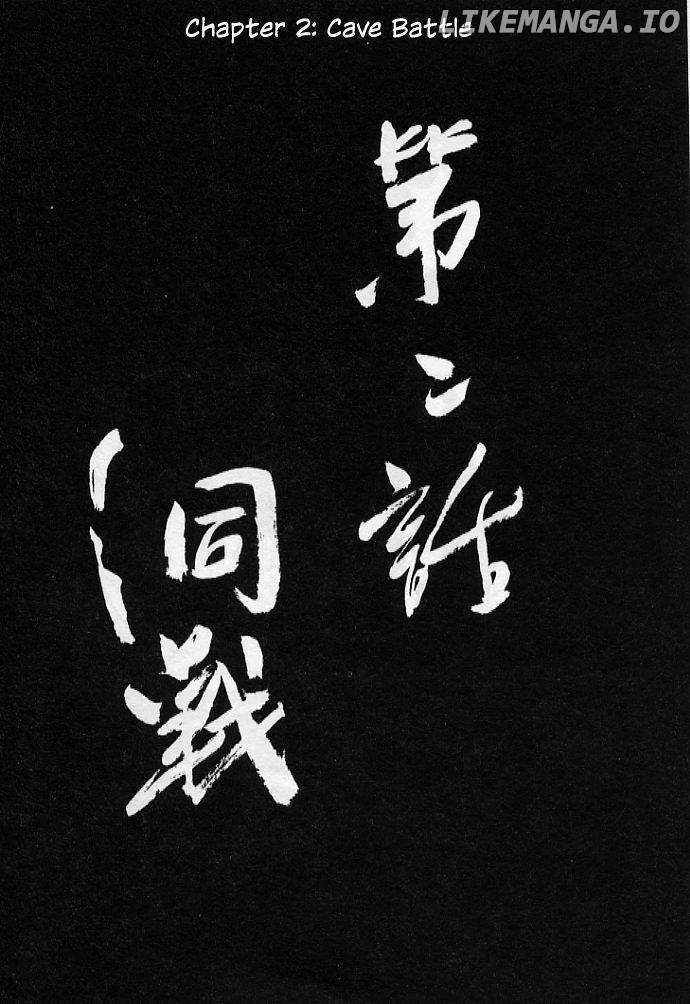 Chapter 2: Cave Battle
LIKEMANGA.IO
第二話
洞戦